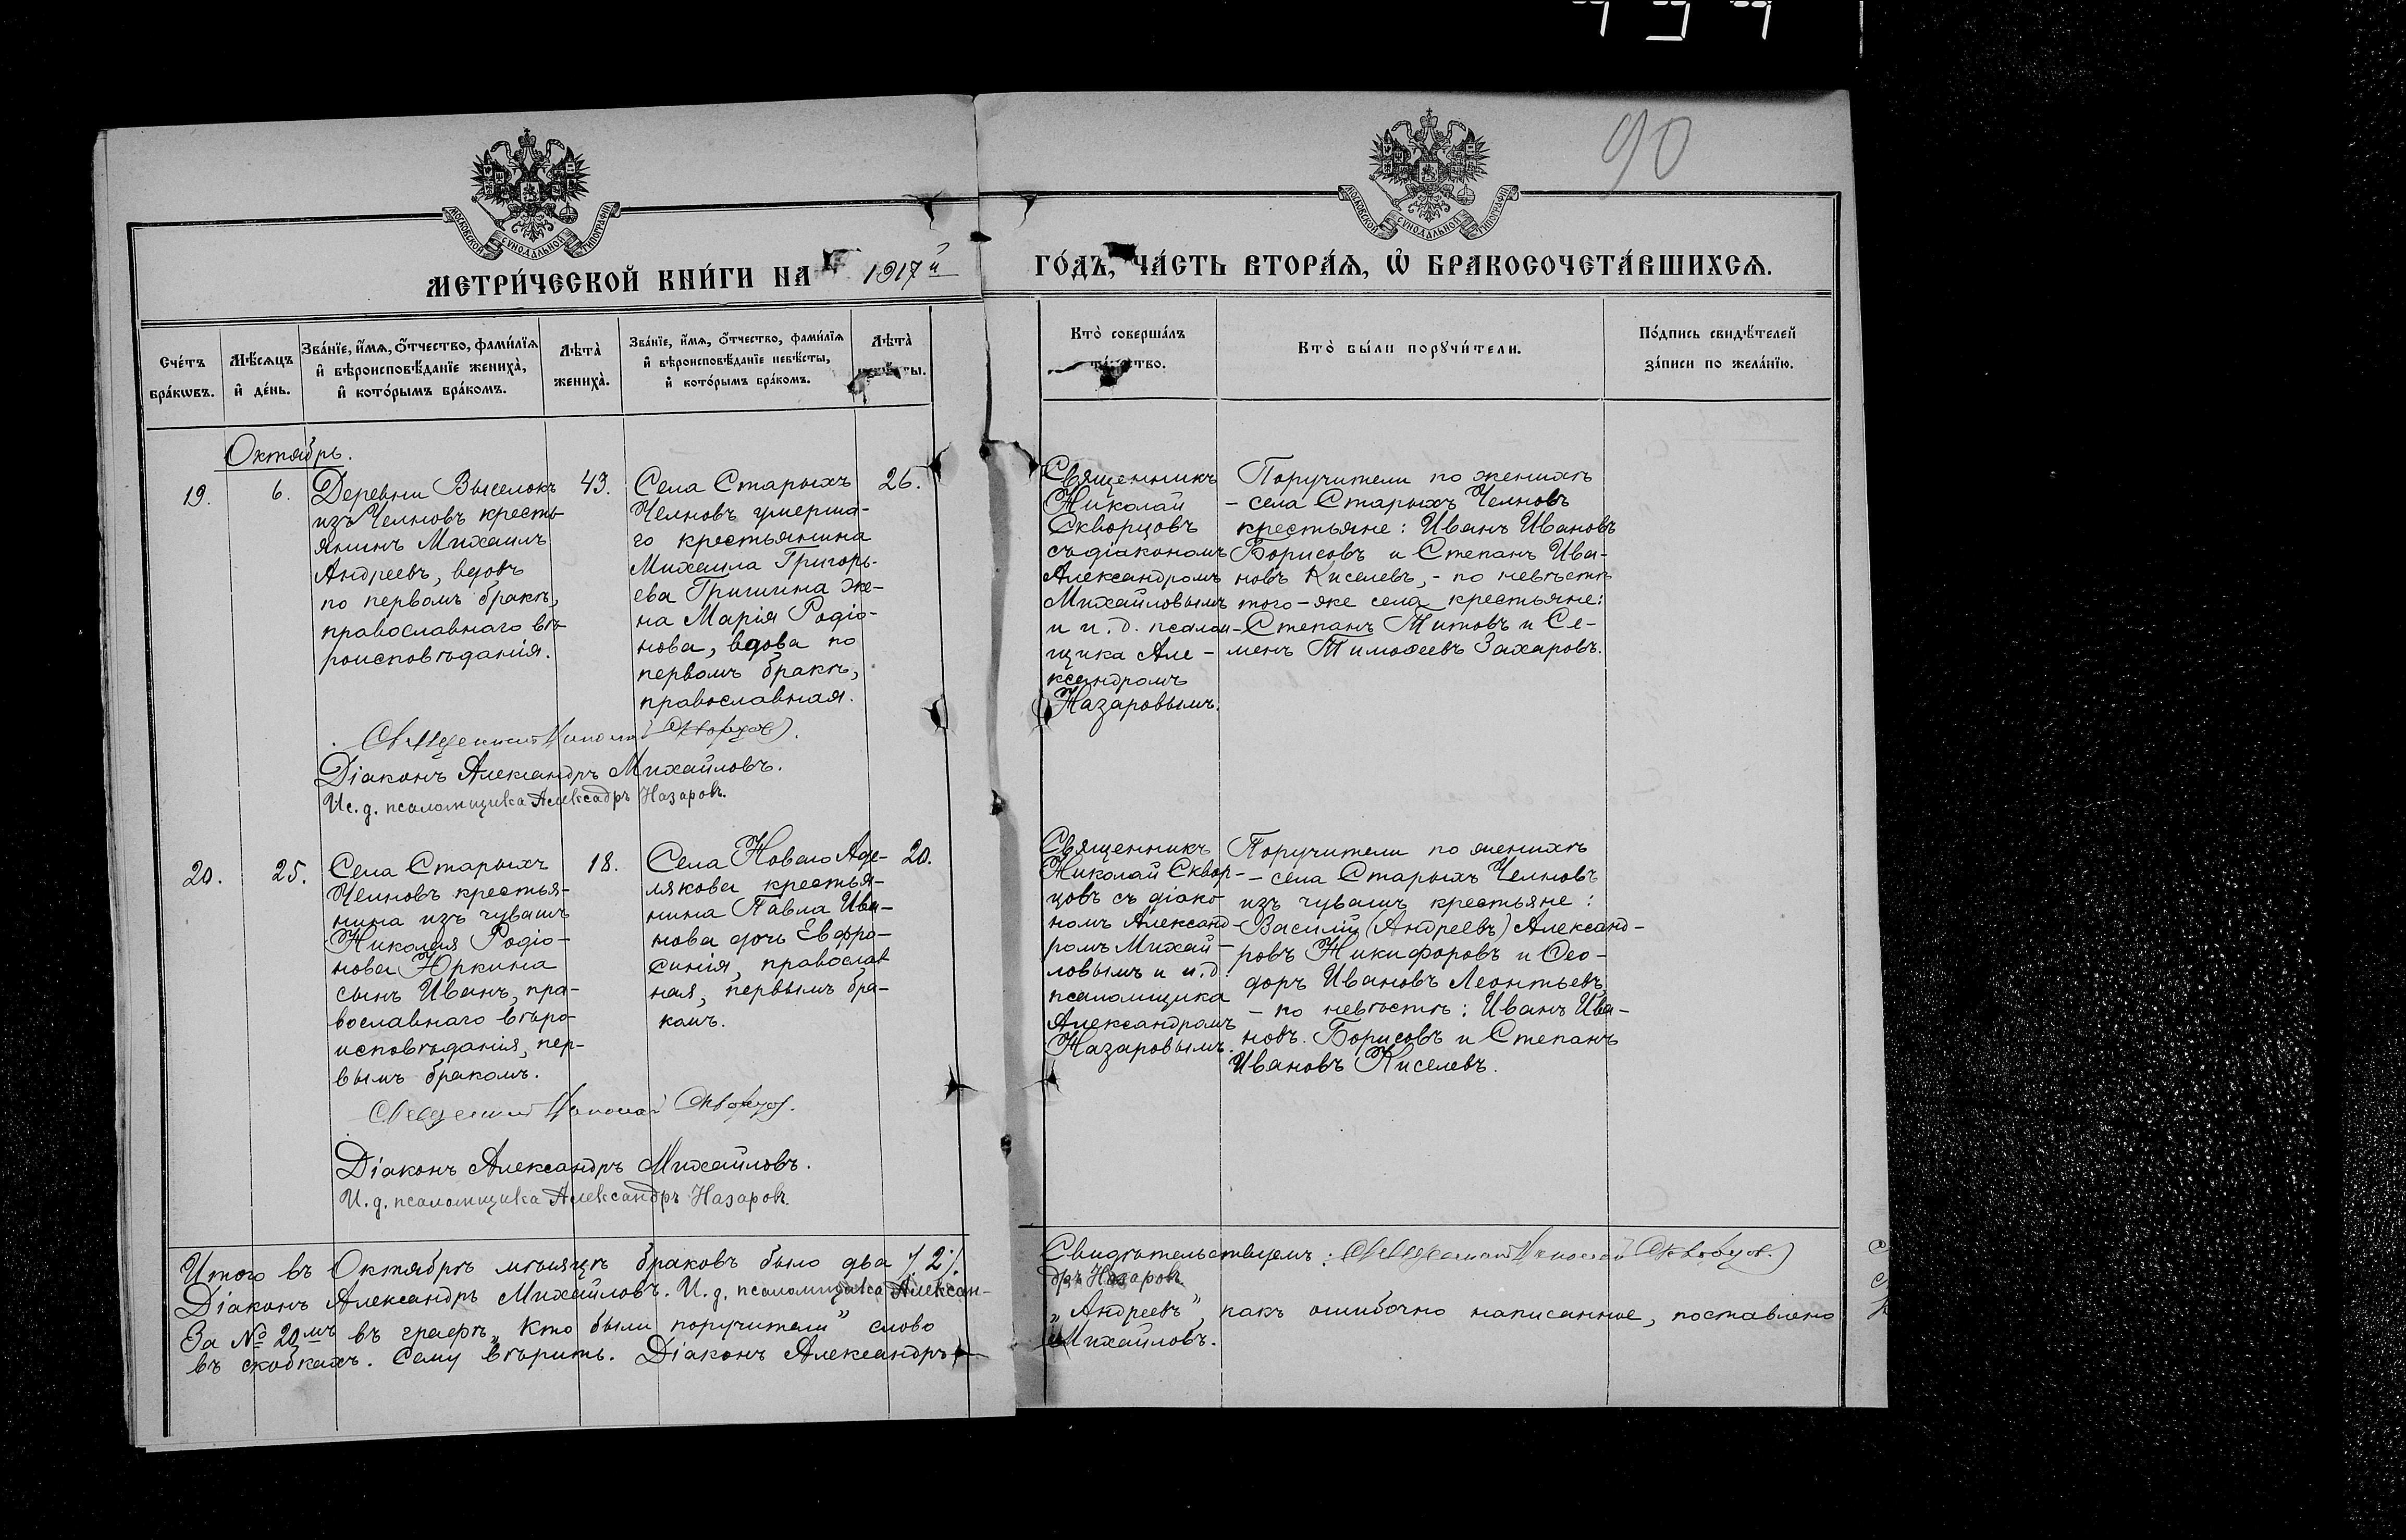 90
МОСКОВСКОЙ СУНОДАЛЬНОЙ ТИПОГРАФІИ
МОСКОВСКОЙ СУНОДАЛЬНОЙ ТИПОГРАФІИ
МЕТРИ́ЧЕСКОЙ КНИ́ГИ НА 1917й
ГО́ДЪ, ЧА́СТЬ ВТОРА́Ѧ, Ѡ҆ БРАКОСОЧЕТА́ВШИХСѦ.
Сче́тъ
бра́кѡвъ.
Мѣ́сѧцъ
и҆ де́нь.
Зва́нїе, и҆́мѧ, ѻ҆́тчество, фами́лїѧ
и҆ вѣроисповѣ́данїе жениха̀,
и҆ кото́рымъ бра́комъ.
Лѣта̀
жениха̀.
Зва́нїе, и҆́мѧ, ѻ҆́тчество, фами́лїѧ
и҆ вѣроисповѣ́данїе невѣ́сты,
и҆ кото́рымъ бра́комъ.
Лѣта̀
Кто̀ соверша́лъ
Кто̀ бы́ли порꙋчи́тели.
По́дпись свидѣ́телей
за́писи по жела́нїю.
Октябрь.
19.
6.
Деревни Выселокъ
изъ Челновъ кресть-
янинъ Михаилъ
Андреевъ, вдовъ
по первомъ бракѣ,
православнаго вѣ-
роисповѣданія.
43.
Села Старыхъ
Челновъ умерша-
го крестьянина
Михаила Григорь-
ева Гришина же-
на Марія Родіо-
нова, вдова по
первомъ бракѣ,
православная.
26.
Священникъ
Николай
Скворцовъ
съ діакономъ
Александромъ
Михайловымъ
и и. д. псалом-
щика Але-
ксандромъ
Назаровымъ.
Поручители по женихѣ
- села Старыхъ Челновъ
крестьяне: Иванъ Ивановъ
Борисовъ и Степанъ Ива-
новъ Киселевъ, - по невѣстѣ
того-же села крестьяне:
Степанъ Титовъ и Се-
менъ Тимоѳеевъ Захаровъ.
Священникъ Николай Скворцовъ.
Діаконъ Александръ Михайловъ.
Ис. д. псаломщика Алексадръ Назаровъ.
20.
25.
Села Старыхъ
Челновъ крестья-
нина изъ чувашъ
Николая Родіо-
нова Юркина
сынъ Иванъ, пра-
вославнаго вѣро-
исповѣданія, пер-
вымъ бракомъ.
18.
Села Новаго Аде-
лякова крестья-
нина Павла Ива-
нова дочь Евфро-
синія, православ
ная, первымъ бра-
комъ.
20.
Священникъ
Николай Сквор-
цовъ съ діако-
номъ Александ-
ромъ Михай-
ловымъ и и. д.
псаломщика
Александромъ
Назаровымъ.
Поручители по женихѣ
- села Старыхъ Челновъ
изъ чувашъ крестьяне:
Василій (Андреевъ) Александ-
ровъ Никифоровъ и Ѳео-
доръ Ивановъ Леонтьевъ,
- по невѣстѣ: Иванъ Ива-
новъ Борисовъ и Степанъ
Ивановъ Киселевъ.
Священникъ Николай Скворцовъ.
Діаконъ Александръ Михайловъ.
И. д. псаломщика Александръ Назаровъ.
Итого въ Октябрѣ мѣсяцѣ браковъ было два /2/.
Діаконъ Александръ Михайловъ. И. д. псаломщика Алексан-
За № 20мъ въ графѣ „Кто были поручители" слово
въ скобкахъ. Сему вѣрить. Діаконъ Александръ
Свидѣтельствуемъ: Священникъ Николай Скворцовъ.
дръ Назаровъ.
„Андреевъ", какъ ошибочно написанное, поставлено
Михайловъ.